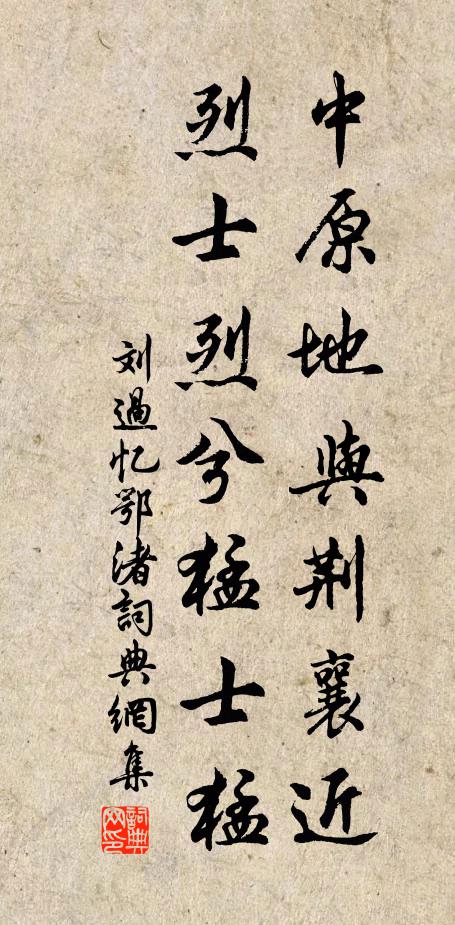 中原地與荆襄近
烈士烈兮猛士猛
刘過忆鄂渚詞典網集
詞典网印